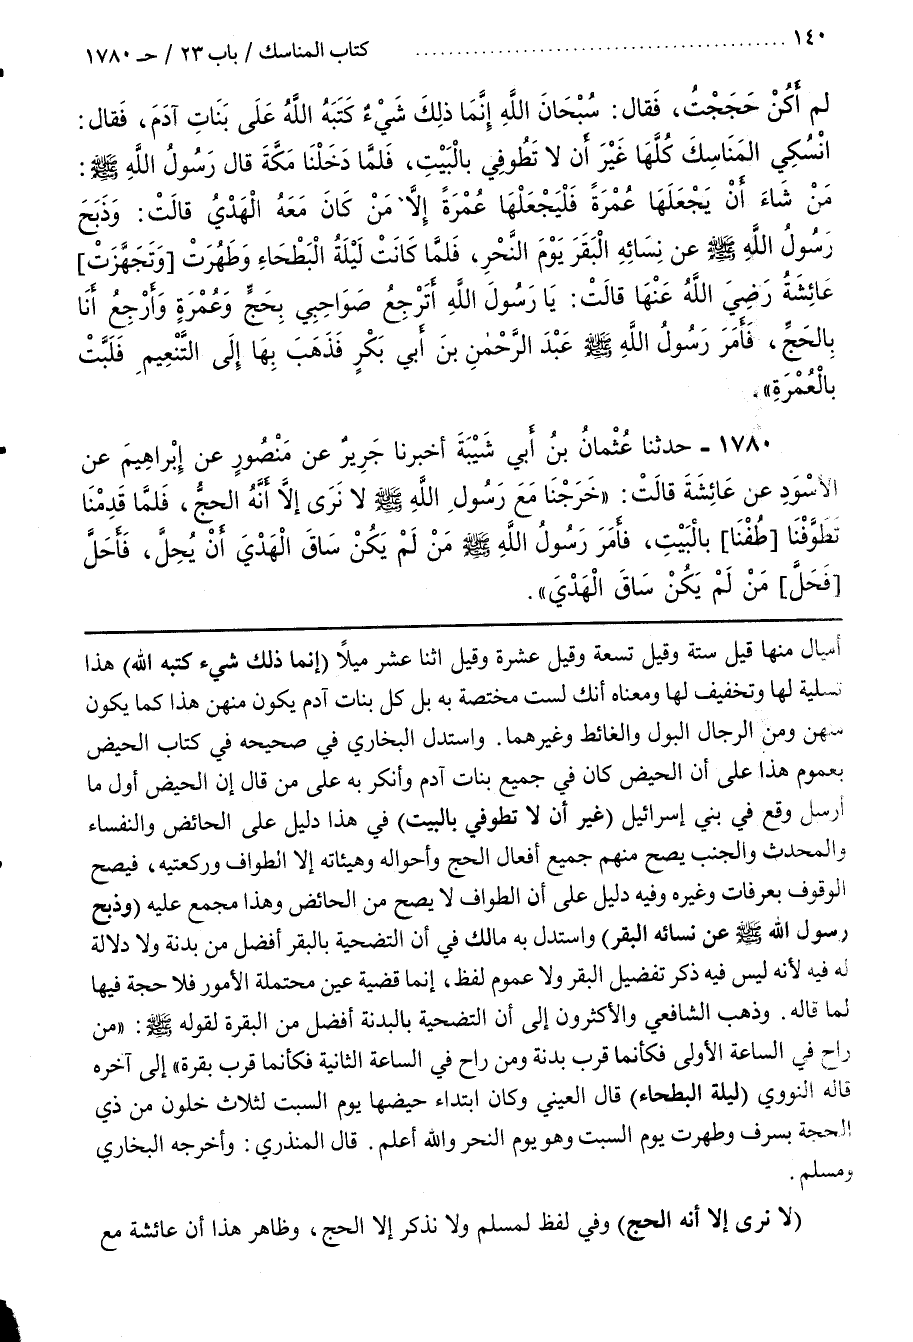 ١٤٠ ........................................ كتاب المناسك / باب ٢٣ / حـ ١٧٨٠
لم أَكُنْ حَجَجْتُ، فَقال: سُبْحَانَ اللَّهِ إِنَّمَا ذلِكَ شَيْءٌ كَتَبَهُ اللَّهُ عَلَى بَنَاتِ آدَمَ، فَقال:
انْسُكِي المَنَاسِكَ كُلَّهَا غَيْرَ أَن لا تَطُوفِي بالْبَيْتِ، فَلمَّا دَخَلْنَا مَكَّةَ قال رَسُولُ اللَّهِ ﷺ:
مَنْ شَاءَ أَنْ يَجْعَلَهَا عُمْرَةً فَلْيَجْعَلْهَا عُمْرَةً إِلَّا مَنْ كَانَ مَعَهُ الْهَدْيُ قالَتْ: وَذَبَحَ
رَسُولُ اللَّهِ ﷺ عن نِسَائِهِ الْبَقَرَ يَوْمَ النَّحْرِ، فَلمَّا كَانَتْ لَيْلَةُ الْبَطْحَاءِ وَطَهُرَتْ [وَتَجَهَّزَتْ]
عَائِشَةُ رَضِيَ اللَّهُ عَنْهَا قالَتْ: يَا رَسُولَ اللَّهِ أَتَرْجِعُ صَوَاحِبِي بِحَجٍّ وَعُمْرَةٍ وَأَرْجِعُ أَنَا
بِالحَجِّ، فَأَمَرَ رَسُولُ اللَّهِ ﷺ عَبْدَ الرَّحْمٰنِ بنَ أَبي بَكْرٍ فَذَهَبَ بِهَا إِلَى التَّنْعِيمِ فَلَبَّتْ
بالْعُمْرَةِ».
١٧٨٠ ـ حدثنا عُثْمانُ بنُ أَبي شَيْبَةَ أخبرنا جَرِيرٌ عن مَنْصُورٍ عن إِبْراهِيمَ عن
الأَسْوَدِ عن عَائِشَةَ قالَتْ: «خَرَجْنَا مَعَ رَسُولِ اللَّهِ ﷺ لا نَرَى إلَّا أَنَّهُ الحجُّ، فَلمَّا قَدِمْنَا
تَطَوَّفْنَا [طُفْنَا] بالْبَيْتِ، فَأَمَرَ رَسُولُ اللَّهِ ﷺ مَنْ لَمْ يَكُنْ سَاقَ الْهَدْيَ أَنْ يُحِلَّ، فَأَحَلَّ
[فَحَلَّ] مَنْ لَمْ يَكُنْ سَاقَ الْهَدْيَ».
أميال منها قيل ستة وقيل تسعة وقيل عشرة وقيل اثنا عشر ميلاً (إنما ذلك شيء كتبه الله) هذا
تسلية لها وتخفيف لها ومعناه أنك لست مختصة به بل كل بنات آدم يكون منهن هذا كما يكون
منهن ومن الرجال البول والغائط وغيرهما. واستدل البخاري في صحيحه في كتاب الحيض
بعموم هذا على أن الحيض كان في جميع بنات آدم وأنكر به على من قال إن الحيض أول ما
أرسل وقع في بني إسرائيل (غير أن لا تطوفي بالبيت) في هذا دليل على الحائض والنفساء
والمحدث والجنب يصح منهم جميع أفعال الحج وأحواله وهيئاته إلا الطواف وركعتيه، فيصح
الوقوف بعرفات وغيره وفيه دليل على أن الطواف لا يصح من الحائض وهذا مجمع عليه (وذبح
رسول الله ﷺ عن نسائه البقر) واستدل به مالك في أن التضحية بالبقر أفضل من بدنة ولا دلالة
له فيه لأنه ليس فيه ذكر تفضيل البقر ولا عموم لفظ، إنما قضية عين محتملة الأمور فلا حجة فيها
لما قاله. وذهب الشافعي والأكثرون إلى أن التضحية بالبدنة أفضل من البقرة لقوله ﷺ: «من
راح في الساعة الأولى فكأنما قرب بدنة ومن راح في الساعة الثانية فكأنما قرب بقرة» إلى آخره
قاله النووي (ليلة البطحاء) قال العيني وكان ابتداء حيضها يوم السبت لثلاث خلون من ذي
الحجة بسرف وطهرت يوم السبت وهو يوم النحر والله أعلم. قال المنذري: وأخرجه البخاري
ومسلم.
(لا نرى إلا أنه الحج) وفي لفظ لمسلم ولا نذكر إلا الحج، وظاهر هذا أن عائشة مع